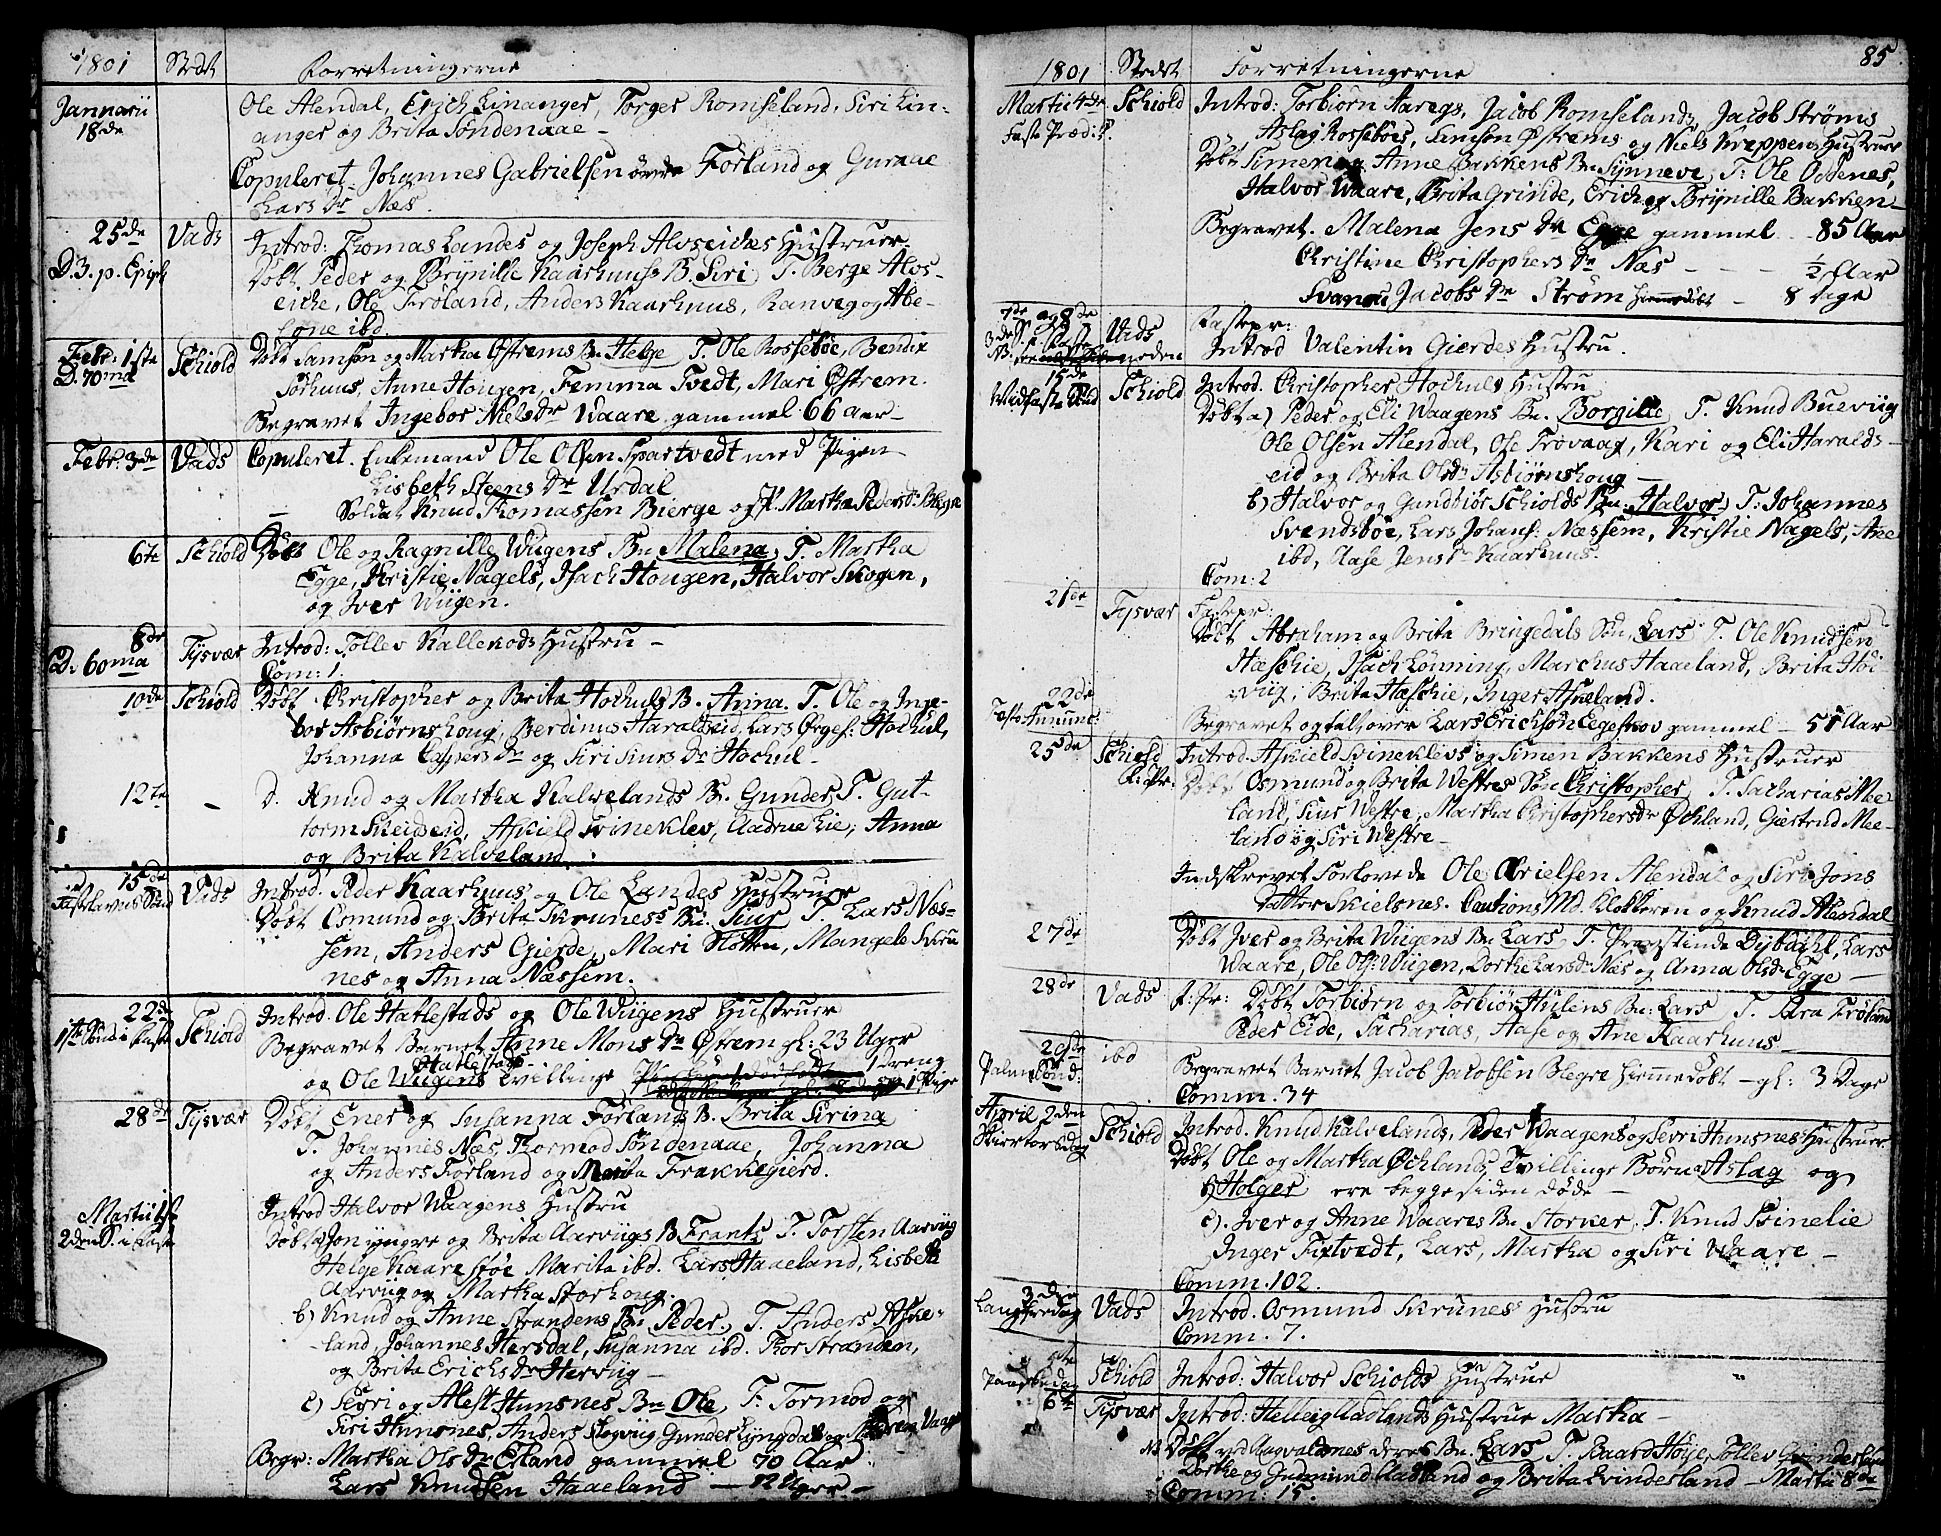 1801 Stedt Forretningerne
Januarii 18de Ole Alendal, Erich Linanger, Torger Romseland, Siri Lin-
anger og Brita Søndenaae -
Copuleret Johannes Gabrielsen øvre Førland og Guraae
Lars Dr Næs.
25de Vads Introd: Thomas Landes og Joseph Alvseikes Hustruer.
D. 3. p. Epiph Døbt Peder og Brynille Kaarhuus B. Siri T. Berge Alvs-
eike, Ole Frøland, Anders Kaarhuus, Ranveg og Abe-
lone ibd.
Febr: 1ste Schiold Døbt Samson og Martha Østrems Bn Helge T. Ole Rossebøe, Bendix
D. 70ma Sørhuus, Anne Hougen, Femma Tvedt, Mari Østrem.
Begravet Ingebor Niels Dr Waare gammel 66 aar -
Febr. 3de Vads Copuleret. Enkemand Ole Olsen Svartvedt med Pigen
Lisbeth Steens Dr Urdal
- Soldat Knud Thomassen Bierge og P. Martha Pedersdr. Blegre
6te Schiold Døbt Ole og Ragnille Wiigens Bn Malena T. Martha
Egge, Kristie Nagels, Isach Hougen, Halvor Skogen,
og Iver Wiigen.
8de Tysvær Introd: Tollev Kallekods Hustru -
D. 60ma Com: 1.
10de Schiold Døbt Christopher og Brita Hochuls B. Anna. T. Ole og Inge-
bor Asbiørnshoug, Berdinus Haraldseid, Lars Ørges: Hochul,
Johanna Caspers Dr og Siri Siurs Dr Hochul -
12te - D. Knud og Martha Kalvelands Bn. Gunder T. Gut-
torm Skeiseid, Askield Svineklev, Aadne Lie, Anna
og Brita Kalveland.
15de Vads Introd. Peder Kaarhuus og Ole Landes Hustruer
Fastelavns Sønd Døbt Osmund og Brita Skrunes Bn. Siur T. Lars Næs-
sem, Anders Gierde, Mari Slotten, Mangele Skru
nes og Anna Næssem.
22de Schiold Introd. Ole Hatlestads og Ole Wiigens Hustruer
1ste Sønd i Faste Begravet Barnet Anne Mons Dr Østrem gl: 23 Uger
og Ole Hatlestads Tvillinge 1 Dreng
og 1 Pige
28de Tysvær Døbt Ener og Susanna Førlands B. Brita Sirina
T. Johannes Næs, Thormod Søndenaae, Johanna
og Anders Førland og Marita Frakkegierd.
Introd Halvor Waagens Hustru
Martii 1ste Døbt a) Jon yngre og Brita Aarviigs B. Frants T. Torsten Aarviig
2den S. i Faste Helge Kaarestøe Marita ibd. Lars Haaeland, Lisbeth
Aarviig og Martha Storhoug.
b) Knud og Anne Strandens Bn Peder. T. Anders Aske-
land, Johannes Hersdal, Susanna ibd. Thor Stranden,
og Brita Erichs Dr Hervig -
c) Sevri og Alest Hunsnes Bn Ole T. Tormod og
Siri Hunsnes, Anders Slogviig, Gunder Lyngdal og
Begr: Martha Ols Dr Eiland gammel 70 Aar
Lars Knudsen Haaeland - 12 Uger -
85.
1801 Stedet Forretningerne
Martii 4de Schiold Introd: Torbiørn Aaregs, Jacob Romselands, Jacob Strøms
Faste Præd: Aslag Rossebøes, Simson Østrems og Niels Kreppens Hustruer
Døbt Simen og Anne Bakkens Bn Synneve, T: Ole Odenes,
Halvor Waare, Brita Grinde, Erich og Brynille Bakken -
Begravet. Malena Jens Dr Egge gammel - 85 Aar
Christine Christophers Dr Næs - - - ½ Aar
Svanau Jacobs Dr Strøm hiemmedøbt - 8 Dage
7de og 8de Vads Fastepr:
3de S. i Faste Introd Valentin Gierdes Hustru.
NB. neden
15de Schiold Introd. Christopher Hochuls Hustru
Midfaste Sønd Døbt a) Peder og Eli Waagens Bn. Borgille T. Knud Bueviig
Ole Olsen Alendal, Ole Trovaag, Kari og Eli Haralds-
eid og Brita Olsdr Asbiørnshoug -
b) Halvor og Gundbiør Schiolds Bn. Halvor T. Johannes
Svendsbøe, Lars Johans: Næssem, Kristie Nagels, Ane
ibd, Aase Jens Dr Kaarhuus.
Com: 2
21de Tysvær Fastepr:
Døbt Abraham og Brita Bringedals Søn Lars T. Ole Knudsen
Hæschie, Isach Lønning, Marchus Haaeland, Brita Høi
viig, Brita Hæschie, Inger Askeland.
22de Begravet og talt over Lars Erichsøn Egeskov gammel - 51 Aar
Festo Annunc:
25de Schiold Introd. Askield Svineklevs og Simen Bakkens Hustruer
F. Pr: Døbt Osmund og Brita Westres Søn Christopher T. Sacharias Mee
land, Siur Westre, Martha Christophersdr Øchland, Giertrud Mee-
land og Siri Westre -
Indskrevet Forlovede Ole Arielsen Alendal og Siri Jons
Datter Skielsnes. Cautions Md. Klokkeren og Knud Alendal
27de Døbt Iver og Brita Wiigens Bn Lars, T. Dybdahl, Lars
Waare, Ole Ols: Wiigen, Dorthe Larsdr Næs og Anna Olsdr Egge -
28de Vads F: Pr: Døbt Torbiørn og Torbiør Hulens Bn: Lars T. Frøland
Peder Eide, Sacharias, Aase og Ane Kaarhuus -
29de ibd Begravet Barnet Jacob Jacobsen Blegre hiemmedøbt - gl: 3 Dage
Palm Sønd: Comm. 34
April 2den Schiold Introd. Knud Kalvelands, Peder Waagens og Sevri Hunsnes Hustruer
Skiertorsdag Døbt Ole og Martha Øchlands Tvillinge Børn a) Aslag og
b) Holger ere begge siden døde -
c). Iver og Anne Waares Bn Storker, T. Knud Svinelie
Inger Tixtvedt, Lars, Martha og Siri Waare -
Comm. 102.
3den Vads Introd. Osmund Skrunes Hustru
Langfredag Comm. 7.
5te Schiold Introd: Halvor Schiolds Hustrue
Paaskedag
6te Tysvær Introd: Helleig Aadlands Hustrue Martha -
NB Døbt ved Augvaldsnes deres Bn. Lars T. Baard Høie, Tollev Grindeland
Dorthe og Gudmund Aadland og Brita Svinderland - Martii 8de
Comm: 15.